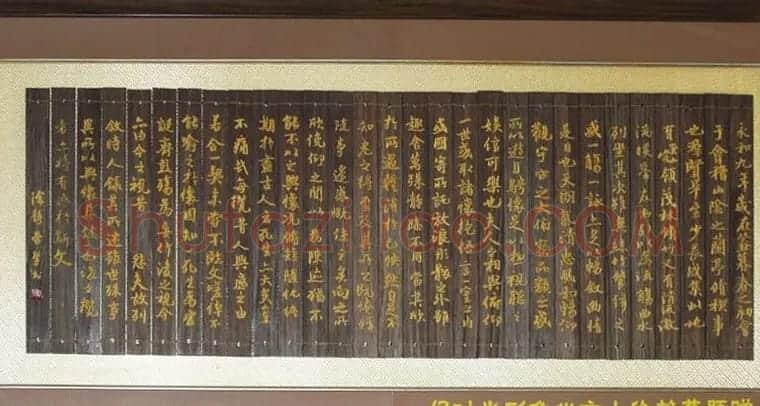 永和九年歲在癸丑暮春之初會
于會稽山陰之蘭亭脩禊事
也羣賢畢至少長咸集此地
有崇領茂林脩竹又有清流激
湍暎帶左右引以為流觴曲水
列坐其次雖無絲竹管弦之
盛一觴一詠亦足以暢叙幽情
是日也天朗氣清惠風和暢仰
觀宇宙之大俯察品類之盛
所以遊目騁懷足以極視聽之
娛信可樂也夫人之相與俯仰
一世或取諸懷抱悟言一室之內
或因寄所託放浪形骸之外雖
趣舍萬殊靜躁不同當其欣
於所遇暫得於己快然自足不
知老之將至及其所之既惓情
隨事遷感慨係之矣向之所
欣俛仰之間以為陳迹猶不
能不以之興懷況脩短隨化終
期於盡古人云死生亦大矣豈
不痛哉每攬昔人興感之由
若合一契未嘗不臨文嗟悼不
能喻之於懷固知一死生為虛
誕齊彭殤為妄作後之視今
亦由今之視昔 悲夫故列
敘時人錄其所述雖世殊事
異所以興懷其致一也後之攬
者亦將有感於斯文